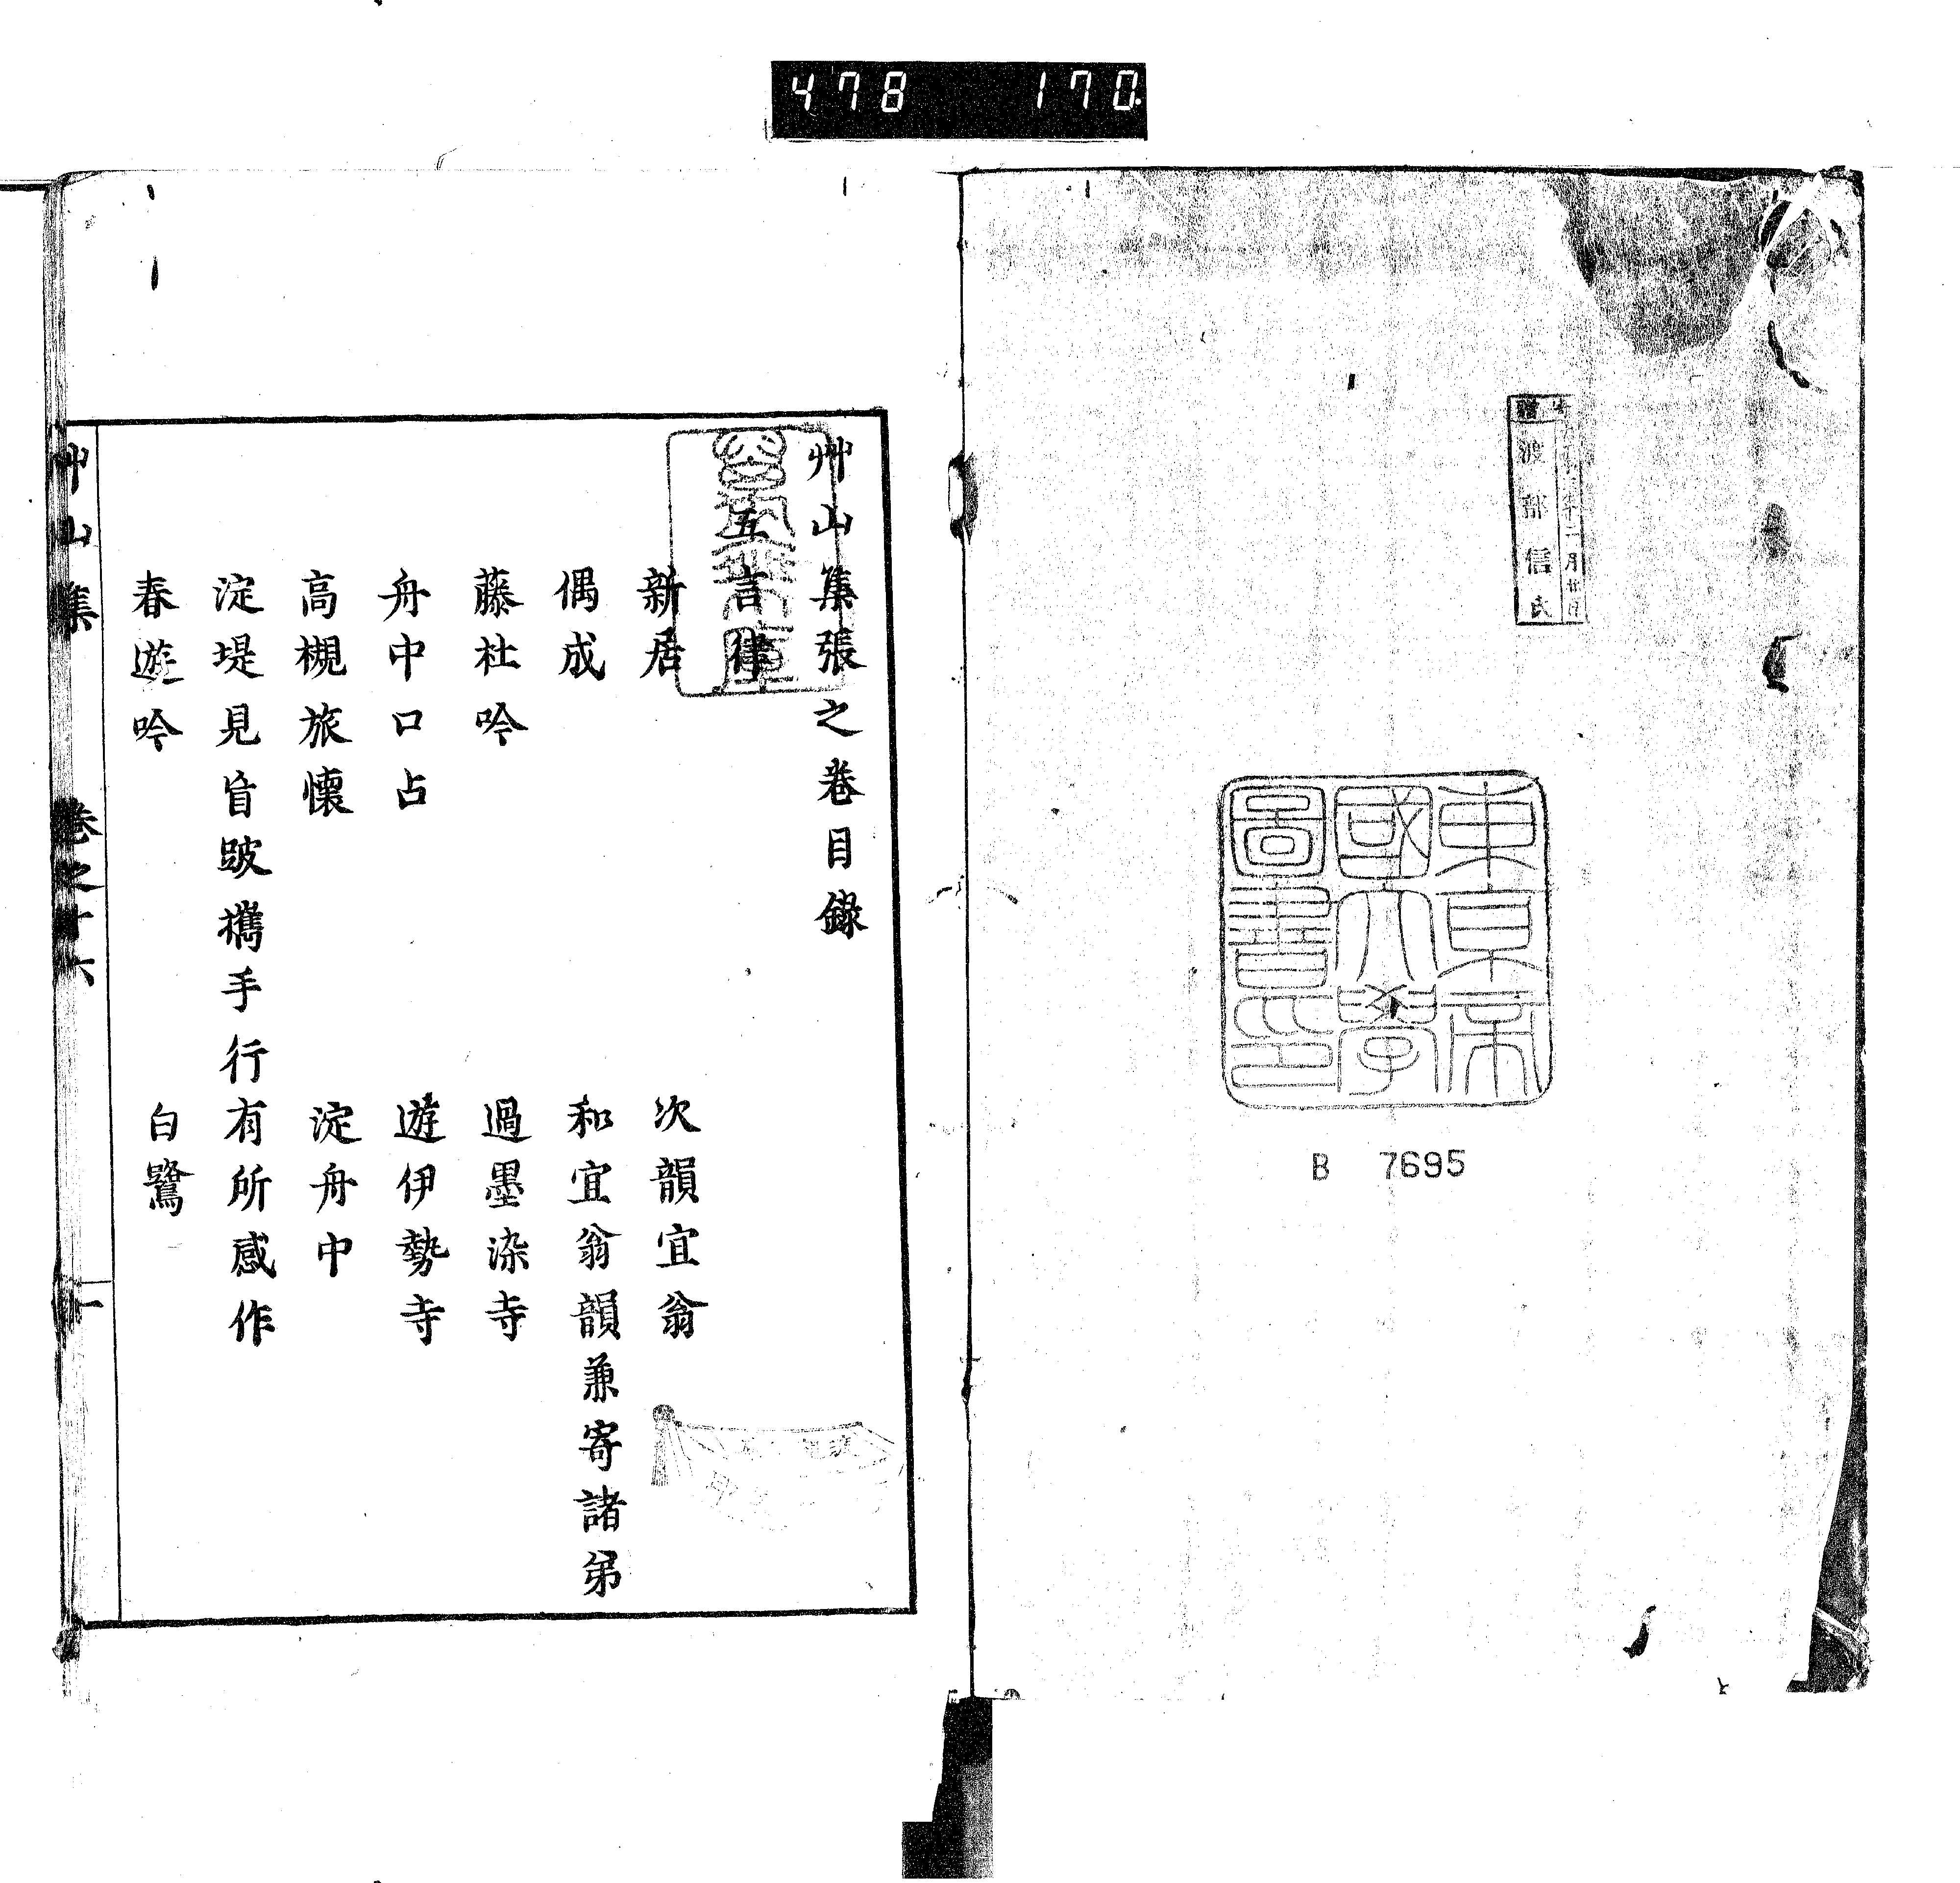 478 170.
渡部信氏
東京帝
國大學
圖書印
B 7695
艸山集張之卷目錄
五言律
新居 次韻宜翁
偶成 和宜翁韻兼寄諸弟
藤杜吟 過墨染寺
舟中口占 遊伊勢寺
高槻旅懷 淀舟中
淀堤見盲跛攜手行有所感作
春遊吟 白鷺
艸山集 卷之十六 一